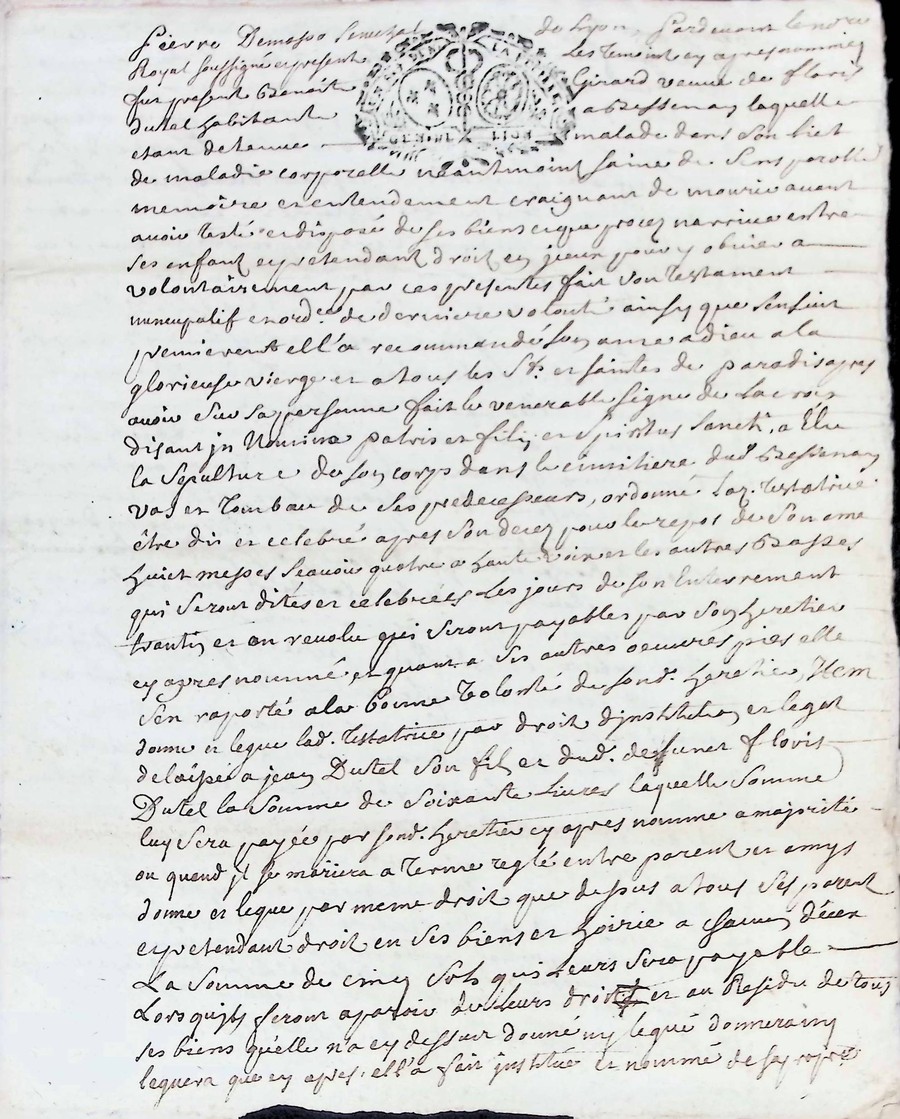 Pierre Demasso Senechal de Lyon, Pardevant le no.re
Royal soussigné et present Les Temoins cy apres nommez
fut present Benoite Girard veuve de floris
Dutel habitante a Bessenay laquelle
etant detenue malade dans son liet
GENERL LION
de maladie corporelle neantmoint saine de sens parolle
memoire et entendement craignant de mourir avant
avoir testé et disposé de ses biens et que procez n'arrive entre
ses enfant et pretendant droit en jceux pour y obvier a
volontairement par ces presentes fait son testament
nuncupatif et ord.ce de derniere volonté ainsy que sensuit
premierement ell'a recommandé son ame a dieu a la
glorieuse vierge et a tous les S.ts et saintes de paradis apres
avoir sur sa personne fait le venerable signe de la croix
disant jn Nomine patris et filij et spiritus sancti, a Elu
la Sepulture de son corps dans le cimitiere dud. Bessenay
vas et Tombau de ses predecesseurs, ordonné lad. Testatrice
être dis et celebré apres son decez pour le repos de son ame
huict messes scavoir quatre a haute voix et les autres Basses
qui seront dites et celebrées les jours de son Enterrement
trantin et an revolu qui seront payables par son heretier
cy apres nommé, et quant a ses autres oeuvres pies elle
s'en raporté a la bonne volonté de sond. heretier, Item
donne et legue lad. Testatrice par droit d'jnstitution et legat
delaissé a jean Dutel son fils et dud. deffunct floris
Dutel la somme de soixante Livres laquelle somme
luy sera payée par sond. heretier cy apres nommé a majorité
ou quand jl se mariera a terme reglé entre parent et amys
donne et legue par meme droit que dessus a tous ses parent
et pretendant droit en ses biens et hoirie a chacun d'ecux
La somme de cinq sols qui leurs sera payable
Lorsqu'jls feront aparoir de leurs droits et au Residu de tous
ses biens qu'elle n'a cy dessus donné ny legué donnera ny
leguera que cy apres. ell'a fait jnstitué et nommé de sa propre